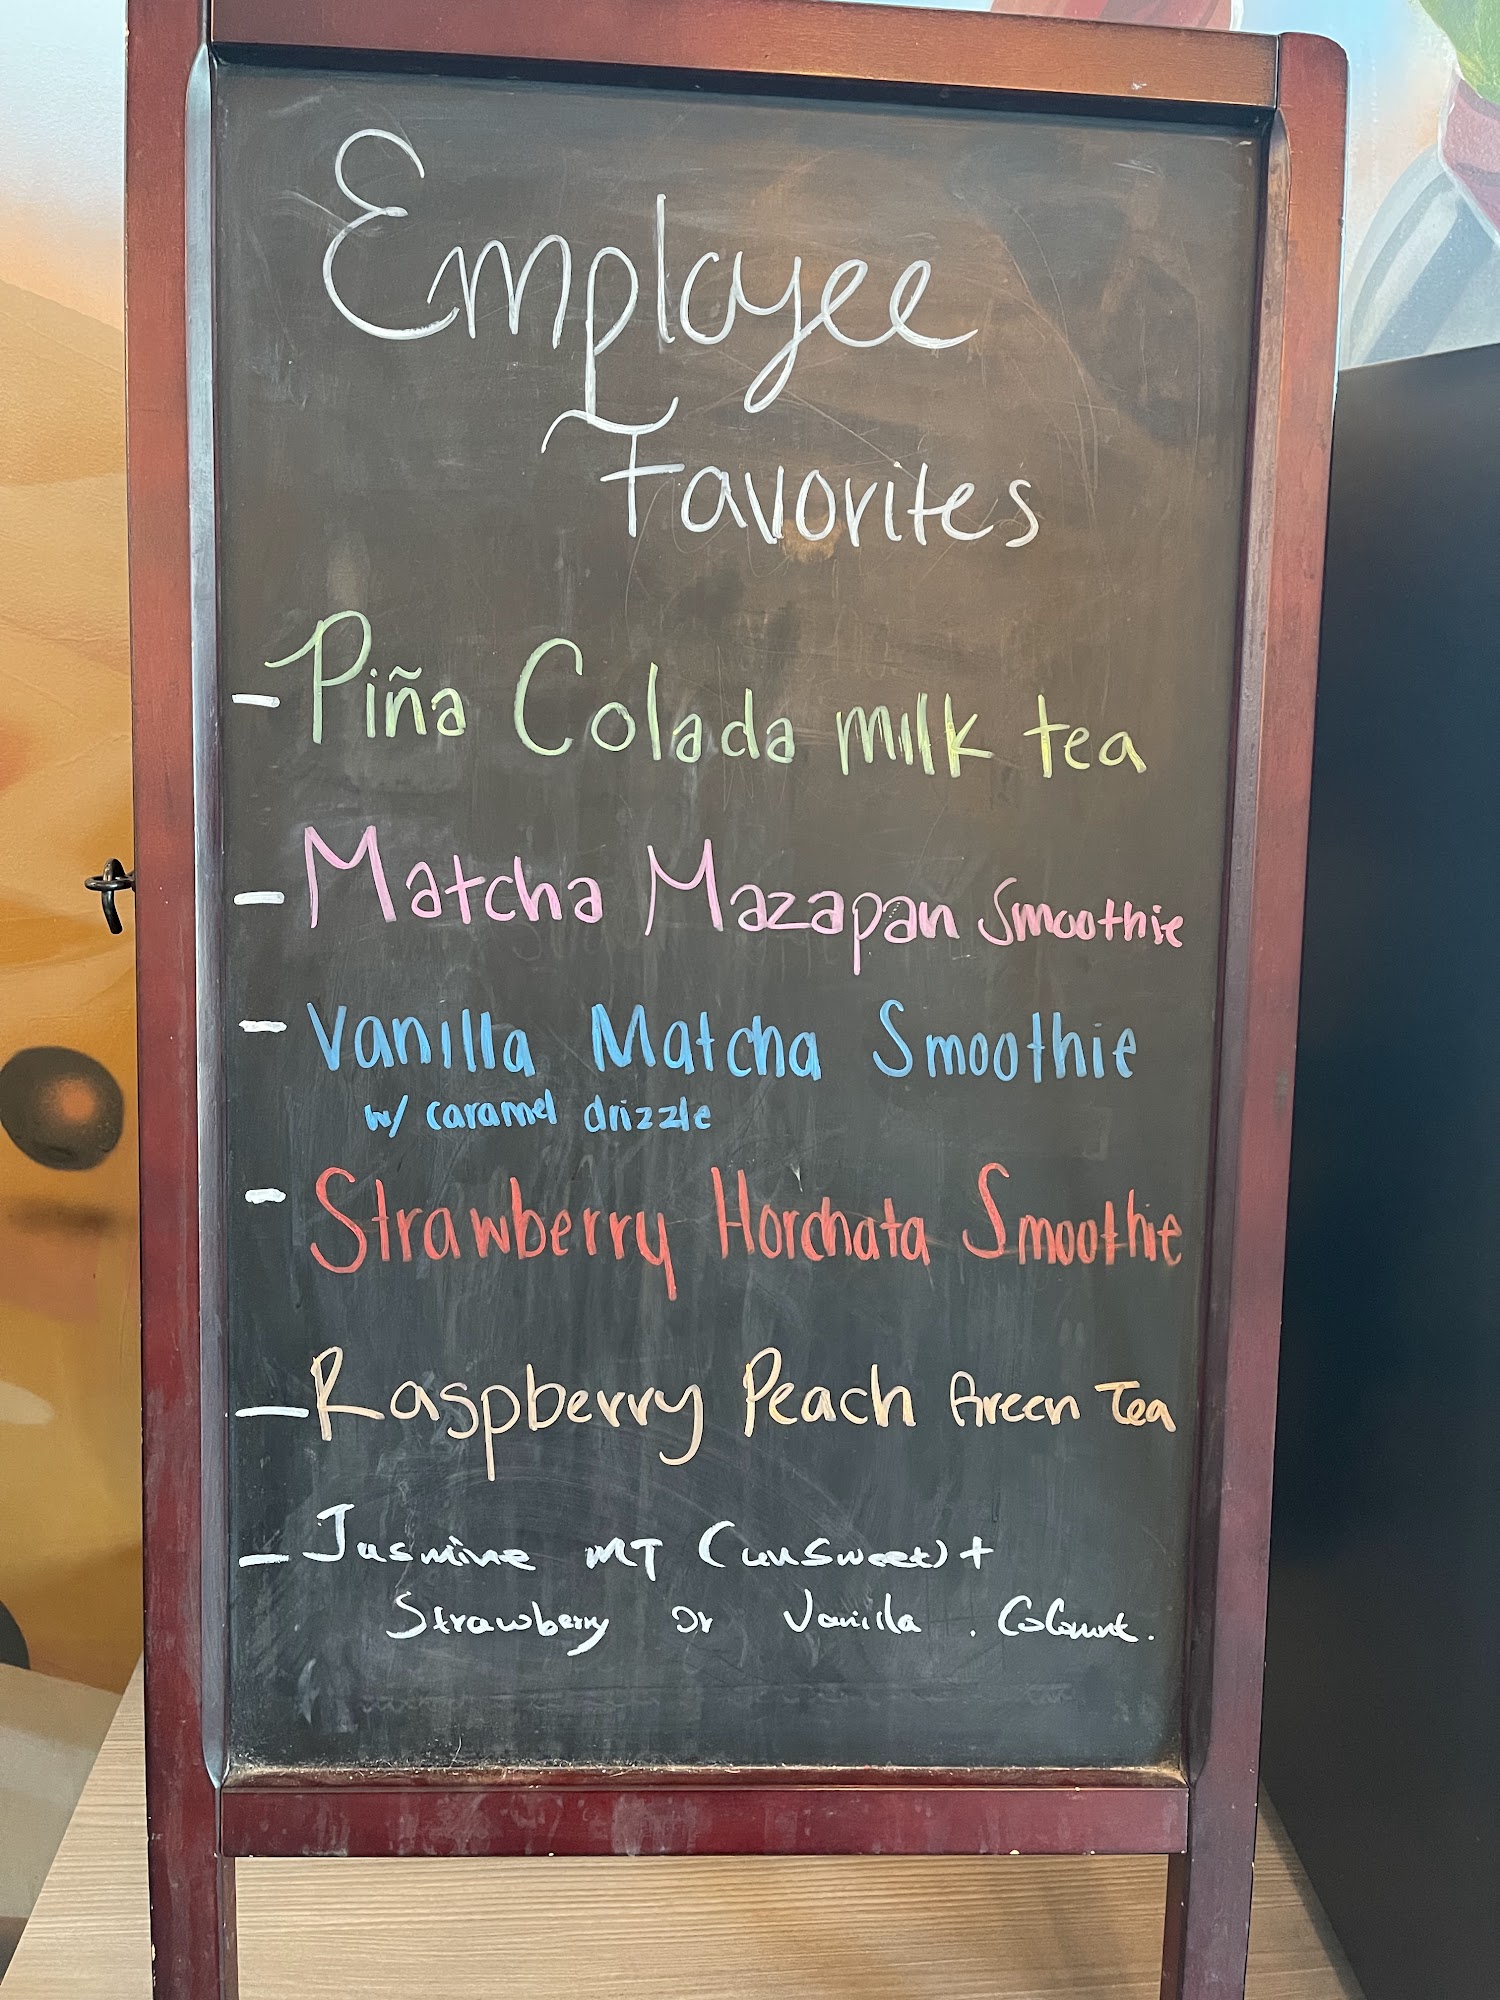 Employee
Favorites
- Piña Colada milk tea
- Matcha Mazapan Smoothie
- Vanilla Matcha Smoothie
w/ caramel drizzle
- Strawberry Horchata Smoothie
- Raspberry Peach Green Tea
- Jasmine MT (unsweet) +
Strawberry or Vanilla .